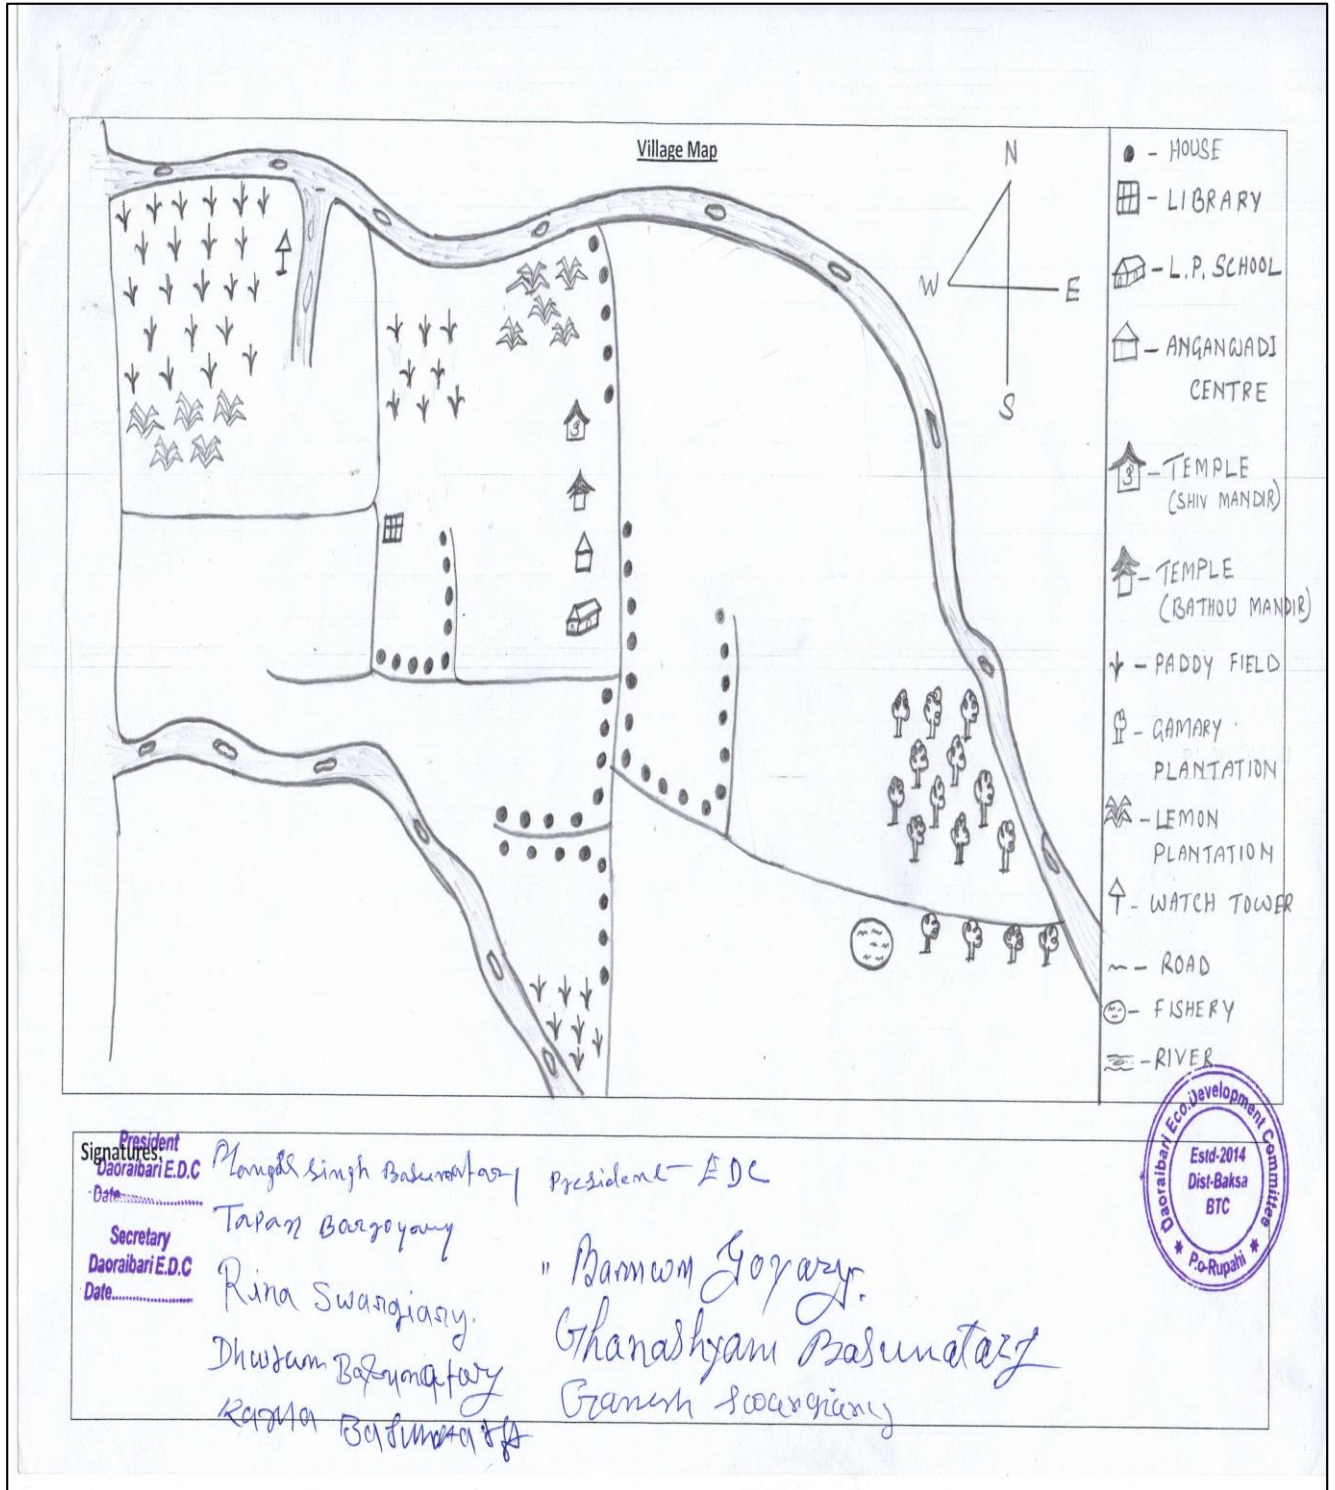 Village Map
N
W
E
S
- HOUSE
- LIBRARY
- L.P. SCHOOL
- ANGANWADI
CENTRE
- TEMPLE
(SHIV MANDIR)
- TEMPLE
(BATHOU MANDIR)
- PADDY FIELD
- GAMARY
PLANTATION
- LEMON
PLANTATION
- WATCH TOWER
- ROAD
- FISHERY
- RIVER
Signatures:
President
Daoraibari E.D.C
Date
Secretary
Daoraibari E.D.C
Date
Singh Basumatary President - EDC
Tapan Bargoyary
Rina Swargiary.
" Goyary.
Basumatary
Ghanashyam Basumatary
Ganesh Swargiary
Daoraibari Eco.Development Committee
Estd-2014
Dist-Baksa
BTC
P.o-Rupahi